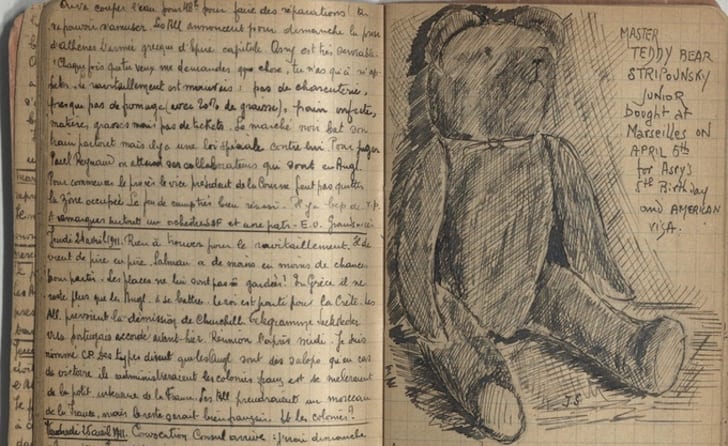 couper l'eau pour 48h pour faire des réparations!
repouvoir s'amuser. Les All annoncent pour dimanche la prise
d'athènes L'armée grecque d'Epire capitule. Asry est très
Chaque fois que tu veux me demander que chose, tu n'as qu'à
Le ravitaillement est mauvais: pas de charcuterie,
presque pas de fromage (avec 20% de graisse), pain infecte,
matière, grasses mais pas de tickets. Le marché noir bat son
train partout mais il y a une loi spéciale contre lui. Pour juger
Paul Reynaud on attend ses collaborateurs qui sont en Angl.
Pour commencer le procès le vice président de la Course peut pas quitter
la zone occupée. Le jeu de camp très bien réussi. Il y a bcp de
A remarquer surtout un orchestre
Jeudi 24 avril 1941. Rien à trouver pour le ravitaillement. Il de-
vient de pire en pire. Salman a de moins en moins de chances
pour partir. Les places ne lui sont pas gardées! En Grèce il ne
reste plus que les Angl. à se battre. Le roi est parti pour la Crète. Les
All. prévoient la démission de Churchill. Telegramme
visa portugais accordé avant-hier. Réunion l'après midi. Je suis
nommé C.P. Des types disent que les angl sont des salops, qu'en cas
de victoire ils administreraient les colonies franç et se mêleraient
de la polit. intérieure de la France. Les All prendraient un morceau
de la France, mais le reste serait bien français. Et les colonies?
Vendredi 25 avril 1941. Convocation Consul arrive: j'irai dimanche
MASTER
TEDDY BEAR
STRIPOUNSKY
JUNIOR
bought at
Marseilles ON
APRIL 5th
for Asry's
5th Birthday
and AMERICAN
VISA.
J.S